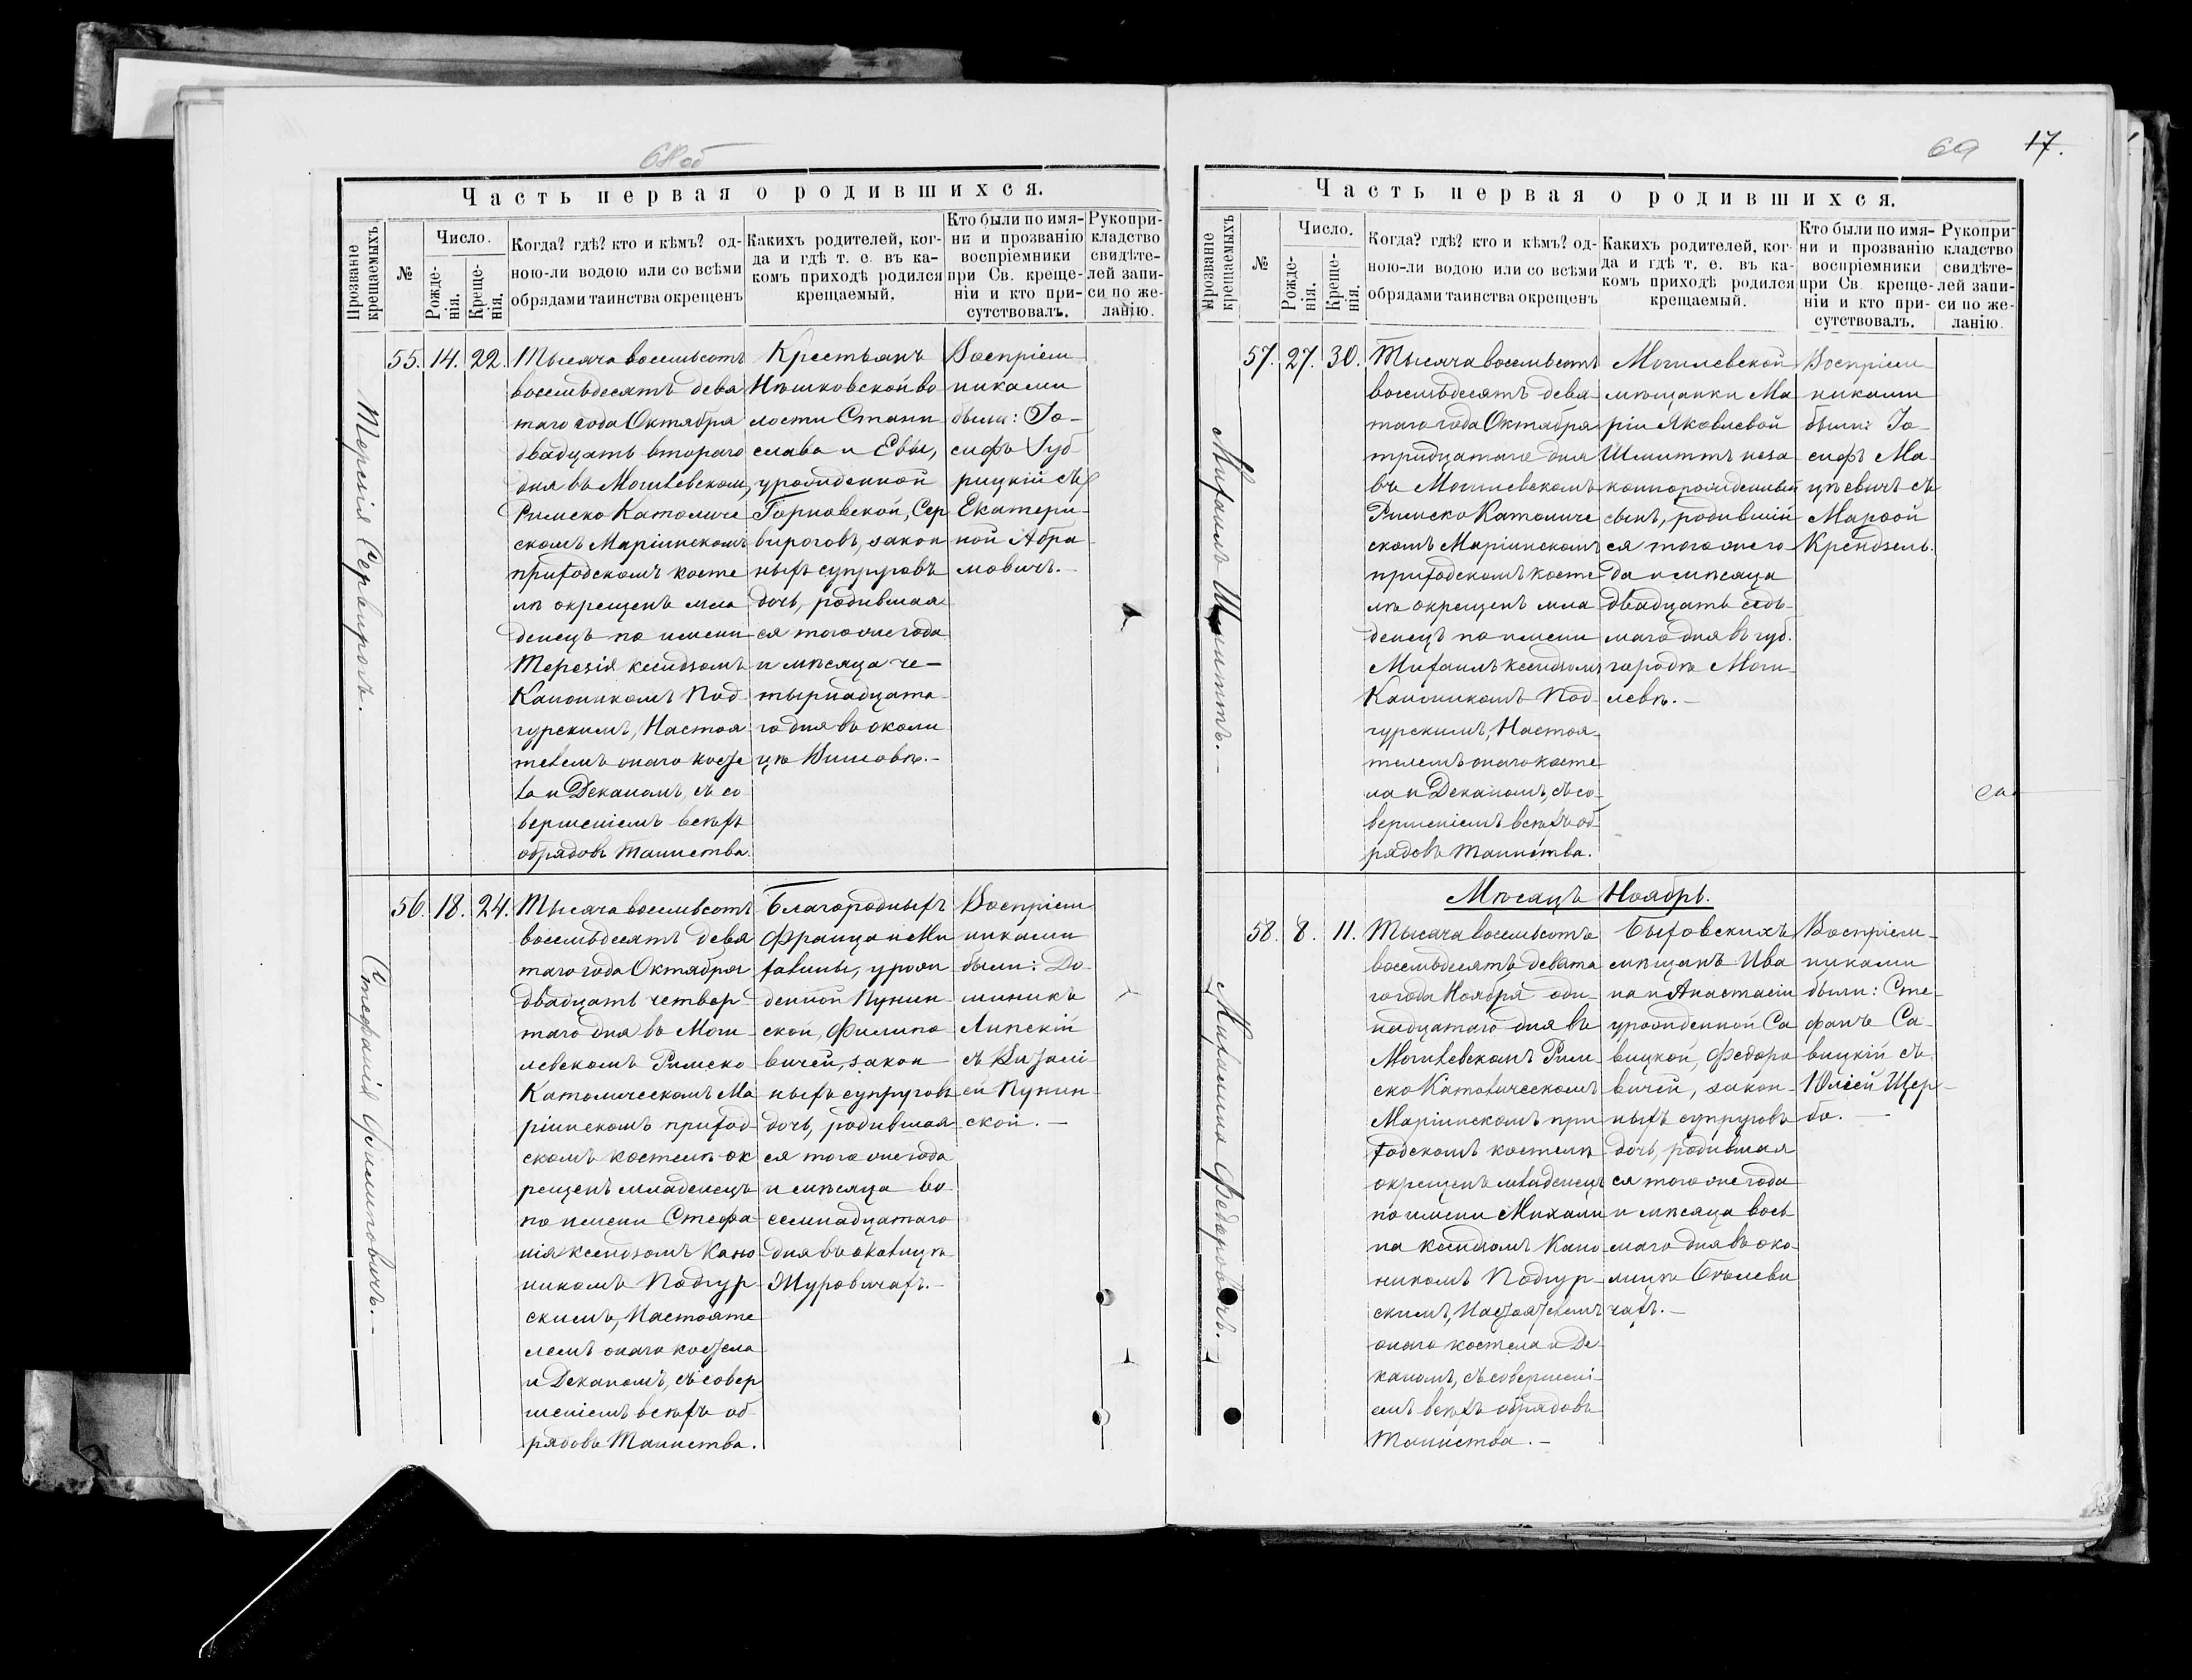 68 об
Часть первая о родившихся.
Прозваніе крещаемыхъ
№
Число.
Рожде-
нія.
Креще-
нія.
Когда? гдѣ? кто и кѣмъ? од-
ною-ли водою или со всѣми
обрядами таинства окрещенъ
Какихъ родителей, ког-
да и гдѣ т. е. въ ка-
комъ приходѣ родился
крещаемый.
Кто были по имя-
ни и прозванію
воспріемники
при Св. креще-
ніи и кто при-
сутствовалъ.
Рукопри-
кладство
свидѣте-
лей запи-
си по же-
ланію.
Терезія Сервирогъ.
55. 14. 22.
Тысяча восемьсотъ
восемьдесятъ девя
таго года Октября
двадцать втораго
дня въ Могилевскомъ
Римско Католиче
скомъ Маріинскомъ
приходскомъ косте
лѣ окрещенъ мла
денецъ по имени
Терезія ксендзомъ
Каноникомъ Под-
гурскимъ, Настоя
телемъ онаго косте
ла и Деканомъ, съ со
вершеніемъ всѣхъ
обрядовъ таинства.
Крестьянъ
Няшковской во
лости Стани
слава и Евы,
урожденной
Горновской, Сер
вироговъ, закон
ныхъ супруговъ
дочь, родившая
ся того же года
и мѣсяца че-
тырнадцата
го дня въ околи
цѣ
Воспріем
никами
были: Іо-
сифъ
съ
Екатери-
ной Абра
мовичъ.-
Стефанія Филиповичъ.-
56. 18. 24.
Тысяча восемьсотъ
восемьдесятъ девя
таго года Октября
двадцать четвер-
таго дня въ Моги-
левскомъ Римско
Католическомъ Ма
ріинскомъ приход-
скомъ костелѣ ок
рещенъ младенецъ
по имени Стефа
нія ксендзомъ Кано
никомъ Подгур
скимъ, Настояте
лемъ онаго костела
и Деканомъ, съ совер
шеніемъ всѣхъ об-
рядовъ таинства.
Благородныхъ
Франца и Ми
халины, урож
денной Пунин-
ской, Филипо
вичей, закон
ныхъ супруговъ
дочь, родившая
ся того же года
и мѣсяца во
семнадцатаго
дня въ околицѣ
Журовичахъ.-
Воспріем
никами
были: До-
миникъ
Липскій
съ
ей Пунин-
ской.-
69 17.
Часть первая о родившихся.
Прозваніе крещаемыхъ
№
Число.
Рожде-
нія.
Креще-
нія.
Когда? гдѣ? кто и кѣмъ? од-
ною-ли водою или со всѣми
обрядами таинства окрещенъ
Какихъ родителей, ког-
да и гдѣ т. е. въ ка-
комъ приходѣ родился
крещаемый.
Кто были по имя-
ни и прозванію
воспріемники
при Св. креще-
ніи и кто при-
сутствовалъ.
Рукопри-
кладство
свидѣте-
лей запи-
си по же-
ланію.
Михаилъ Шмиттъ.-
57. 27. 30.
Тысяча восемьсотъ
восемьдесятъ девя-
таго года Октября
тридцатаго дня
въ Могилевскомъ
Римско Католиче
скомъ Маріинскомъ
приходскомъ косте
лѣ окрещенъ мла
денецъ по имени
Михаилъ ксендзомъ
Каноникомъ Под-
гурскимъ, Настоя-
телемъ онаго косте
ла и Деканомъ, съ со-
вершеніемъ всѣхъ об
рядовъ таинства.
Могилевской
мѣщанки Ма
ріи Яковлевой
Шмиттъ неза-
коннорожденный
сынъ, родившій
ся того же го-
да и мѣсяца
двадцать седь-
маго дня въ губ.
городѣ Моги-
левѣ.-
Воспріем
никами
были: Іо-
сифъ Ма-
цѣевичъ съ
Марѳой
Крендзель.
Мѣсяцъ Ноябрь.
Михалина Федаровичъ.-
58. 8. 11.
Тысяча восемьсотъ
восемьдесятъ девята
го года Ноября оди-
надцатаго дня въ
Могилевскомъ Рим-
ско Католическомъ
Маріинскомъ при
ходскомъ костелѣ
окрещенъ младенецъ
по имени Михали
на ксендзомъ Кано-
никомъ Подгур-
скимъ, Настоятелемъ
онаго костела и Де-
каномъ, съ совершені-
емъ всѣхъ обрядовъ
таинства.-
Быховскихъ
мѣщанъ Ива
на и Анастасіи
урожденной Са
вицкой, Федоро
вичей, закон-
ныхъ супруговъ
дочь, родившая
ся того же года
и мѣсяца вось-
маго дня въ око-
лицѣ Бѣлеви
чахъ.-
Воспріем-
никами
были: Сте-
фанъ Са-
вицкій съ
Юліей Щер-
бо.-